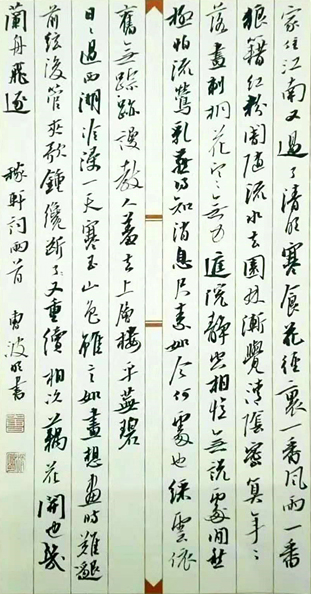 家住江南又過了清明寒食花徑裏一番風雨一番
狼籍紅粉闇随流水去園林漸覺清陰密算年々
落盡刺桐花寒無力庭院靜空相憶無說處閒愁
極怕流鶯乳燕得知消息尺素如今何處也綵雲依
舊無踪跡謾教人羞去上層樓平蕪碧
日日過西湖冷浸一天寒玉山色雖言如畫想畫時難邈
前弦後管夾歌鍾纔斷又重續相次藕花開也幾
蘭舟飛逐 稼軒詞兩首 書